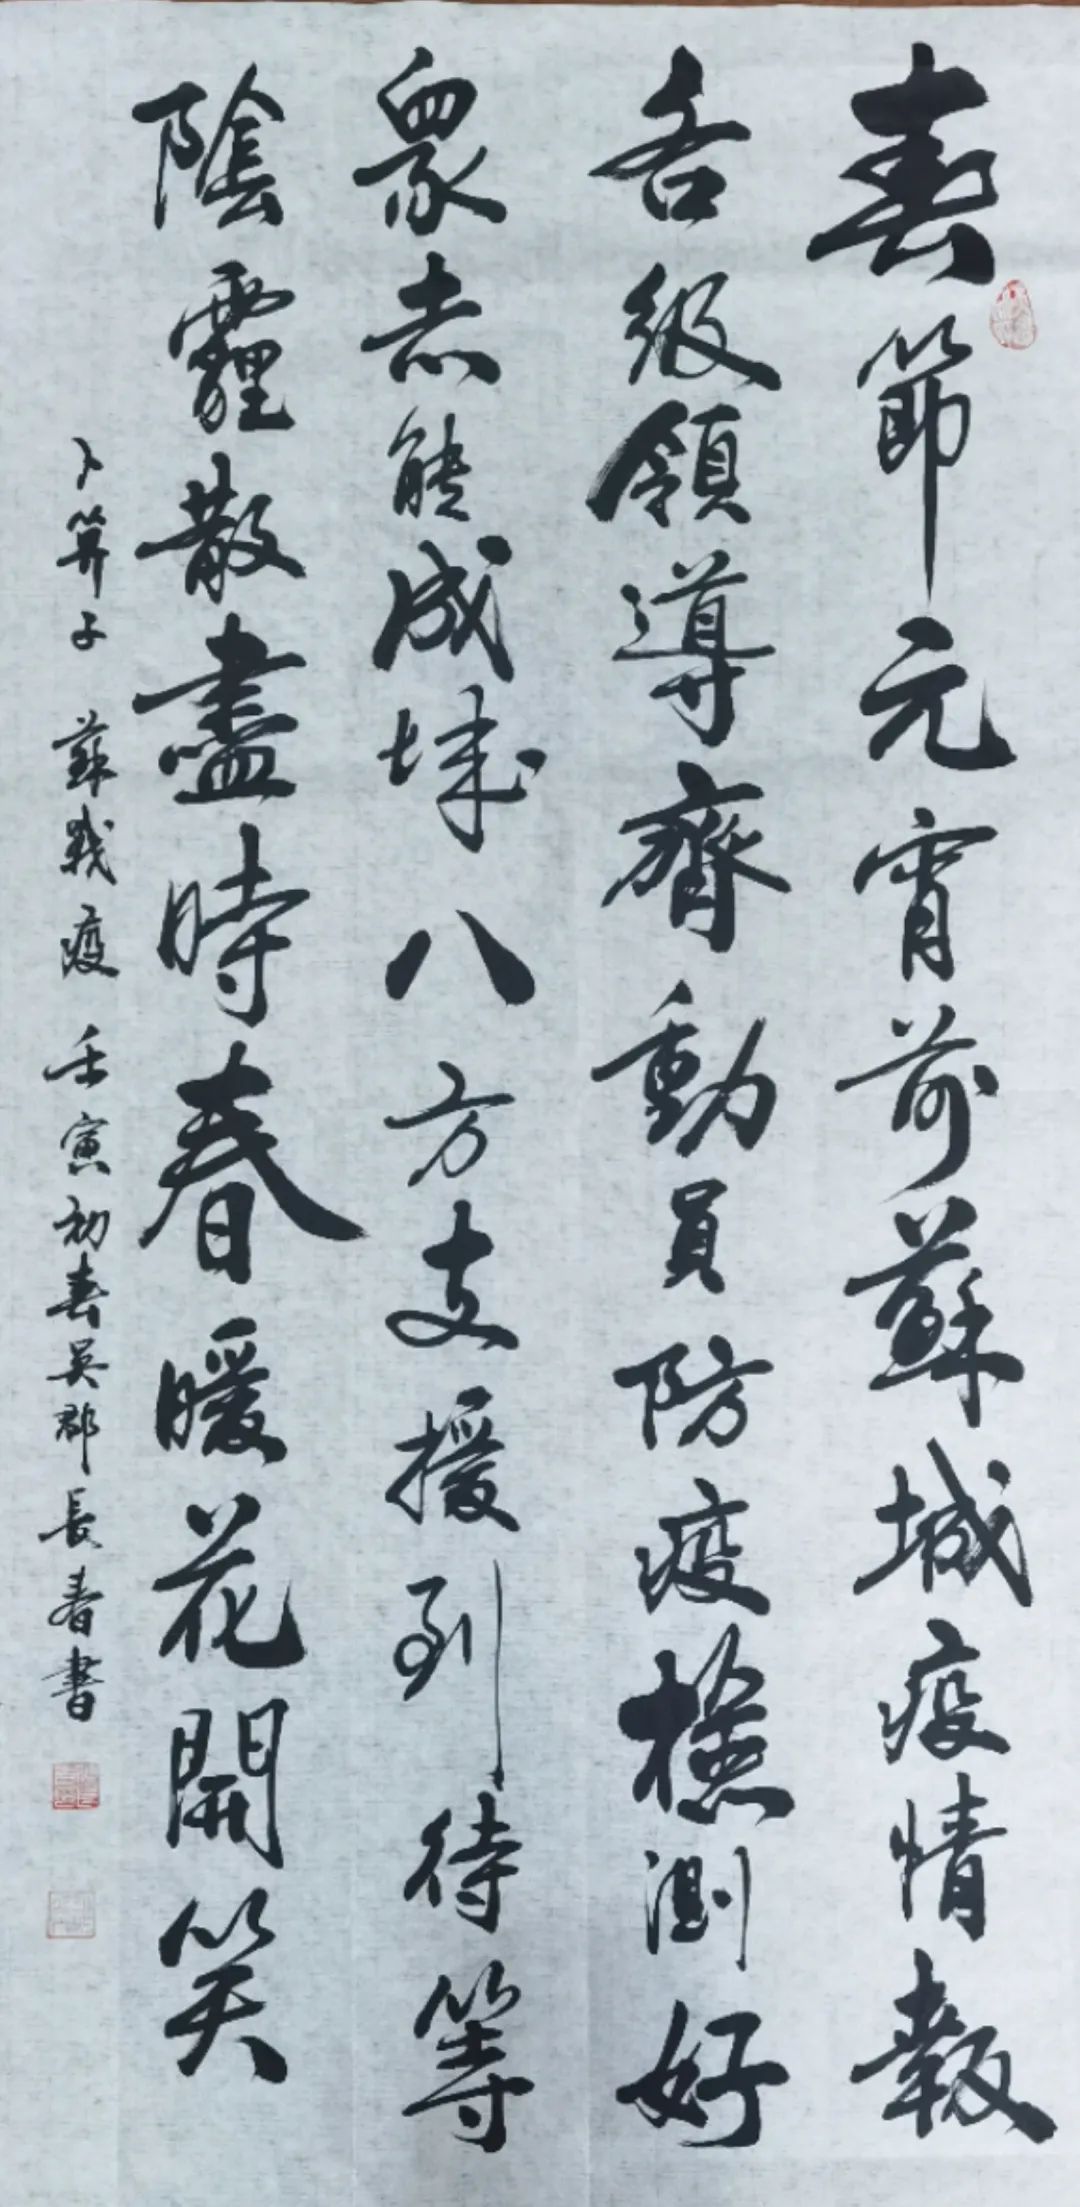 春節元宵前蘇城疫情報
各級領導齊動員防疫檢測好
眾志能成城八方支援到待等
陰霾散盡時春暖花開笑
卜算子 蘇戰疫 壬寅初春吳郡長春書